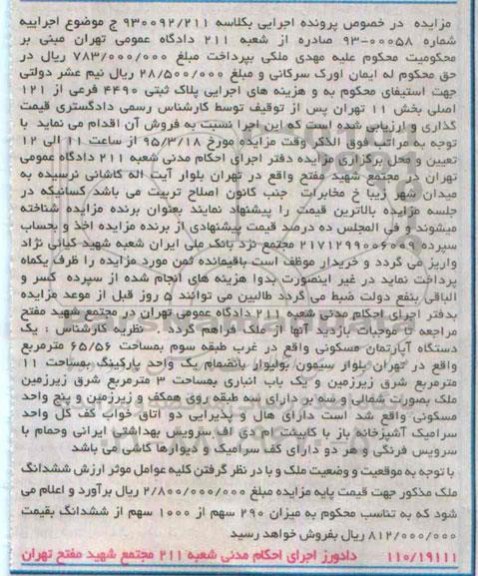 مزایده در خصوص پرونده اجرایی بکلاسه ۹۳۰۰۹۲/۲۱۱ ج موضوع اجراییه
شماره ۰۰۰۵۸-۹۳ صادره از شعبه ۲۱۱ دادگاه عمومی تهران مبنی بر
محکومیت محکوم علیه مهدی ملکی بپرداخت مبلغ ۷۸۳/۰۰۰/۰۰۰ ریال در
حق محکوم له ایمان اورک سرکانی و مبلغ ۲۸/۵۰۰/۰۰۰ ریال نیم عشر دولتی
جهت استیفای محکوم به و هزینه های اجرایی پلاک ثبتی ۴۴۹۰ فرعی از ۱۲۱
اصلی بخش ۱۱ تهران پس از توقیف توسط کارشناس رسمی دادگستری قیمت
گذاری و ارزیابی شده است که این اجرا نسبت به فروش آن اقدام می نماید با
توجه به مراتب فوق الذکر وقت مزایده مورخ ۹۵/۳/۱۸ از ساعت ۱۱ الی ۱۲
تعیین و محل برگزاری مزایده دفتر اجرای احکام مدنی شعبه ۲۱۱ دادگاه عمومی
تهران در مجتمع شهید مفتح واقع در تهران بلوار آیت اله کاشانی نرسیده به
میدان شهر زیبا خ مخابرات جنب کانون اصلاح تربیت می باشد کسانیکه در
جلسه مزایده بالاترین قیمت را پیشنهاد نمایند بعنوان برنده مزایده شناخته
میشوند و فی المجلس ده درصد قیمت پیشنهادی از برنده مزایده اخذ و بحساب
سپرده ۲۱۷۱۲۹۹۰۰۶۰۰۹ مجتمع نزد بانک ملی ایران شعبه شهید کیانی نژاد
واریز می گردد و خریدار موظف است باقیمانده ثمن مورد مزایده را ظرف یکماه
پرداخت نماید در غیر اینصورت بدوا هزینه های انجام شده از سپرده کسر و
الباقی بنفع دولت ضبط می گردد طالبین می توانند ۵ روز قبل از موعد مزایده
بدفتر اجرای احکام مدنی شعبه ۲۱۱ دادگاه عمومی تهران در مجتمع شهید مفتح
مراجعه تا موجبات بازدید آنها از ملک فراهم گردد . نظریه کارشناس : یک
دستگاه آپارتمان مسکونی واقع در غرب طبقه سوم بمساحت ۶۵/۵۶ مترمربع
واقع در تهران بلوار سیمون بولیوار بانضمام یک واحد پارکینگ بمساحت ۱۱
مترمربع شرق زیرزمین و یک باب انباری بمساحت ۳ مترمربع شرق زیرزمین
ملک بصورت شمالی و سه بر دارای سه طبقه روی همکف و زیرزمین و پنج واحد
مسکونی واقع شد است دارای هال و پذیرایی دو اتاق خواب کف کل واحد
سرامیک آشپزخانه باز با کابینت ام دی اف سرویس بهداشتی ایرانی وحمام با
سرویس فرنگی و هر دو دارای کف سرامیک و دیوارها کاشی می باشد
با توجه به موقعیت و وضعیت ملک و با در نظر گرفتن کلیه عوامل موثر ارزش ششدانگ
ملک مذکور جهت قیمت پایه مزایده مبلغ ۲/۸۰۰/۰۰۰/۰۰۰ ریال برآورد و اعلام می
شود که به تناسب محکوم به میزان ۲۹۰ سهم از ۱۰۰۰ سهم از ششدانگ بقیمت
۸۱۲/۰۰۰/۰۰۰ ریال بفروش خواهد رسید
۱۱۰/۱۹۱۱۱ دادورز اجرای احکام مدنی شعبه ۲۱۱ مجتمع شهید مفتح تهران